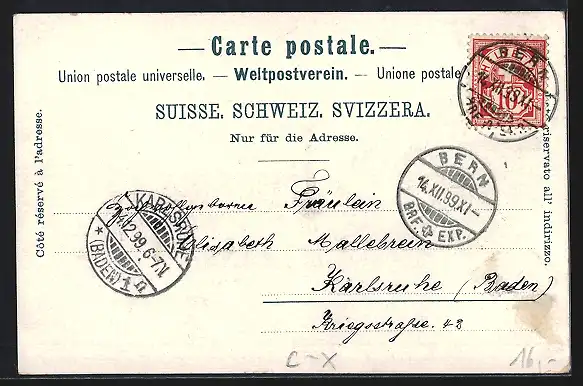 — Carte postale. —
Union postale universelle. — Weltpostverein. — Unione postale
SUISSE. SCHWEIZ. SVIZZERA.
Nur für die Adresse.
Côté réservé à l'adresse.
riservato all' indirizzo.
BERN
10
BERN
14.XII.99.XI–
BRF. EXP.
KARLSRUHE
12.99.6-7N.
* (BADEN) 1
Fräulein
Elisabeth Mallebrein
Karlsruhe (Baden)
Kriegsstraße. 48
C-X
16,-